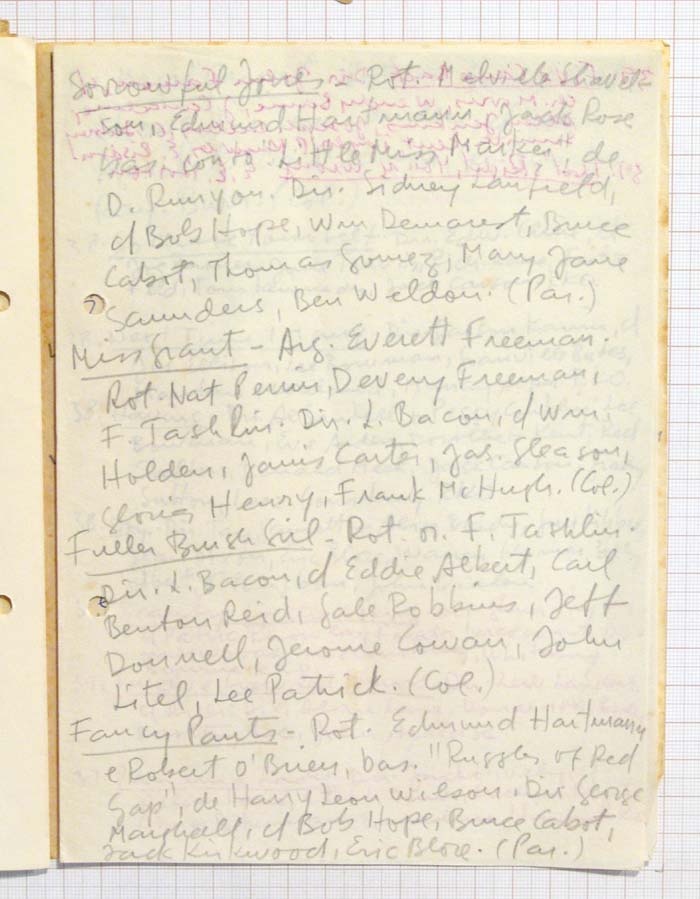 Sorrowful Jones - Rot. Melville Shavel-
son, Edmund Hartmann, Jack Rose
bas. conto Little Miss Marker, de
D. Runyon. Dir. Sidney Lanfield,
c/ Bob Hope, Wm Demarest, Bruce
Cabot, Thomas Gomez, Mary Jane
Saunders, Ben Weldon. (Par.)
Miss Grant - Arg. Everett Freeman.
Rot. Nat Perrin, Devery Freeman,
F. Tashlin. Dir. L. Bacon, c/ Wm.
Holden, Janis Carter, Jas. Gleason,
Gloria Henry, Frank McHugh. (Col.)
Fuller Brush Girl - Rot. or. F. Tashlin.
Dir. L. Bacon, c/ Eddie Albert, Carl
Benton Reid, Gale Robbins, Jeff
Donnell, Jerome Cowan, John
Litel, Lee Patrick. (Col.)
Fancy Pants - Rot. Edmund Hartmann
e Robert O'Brien, bas. "Ruggles of Red
Gap", de Harry Leon Wilson. Dir George
Marshall, c/ Bob Hope, Bruce Cabot,
Jack Kirkwood, Eric Blore. (Par.)